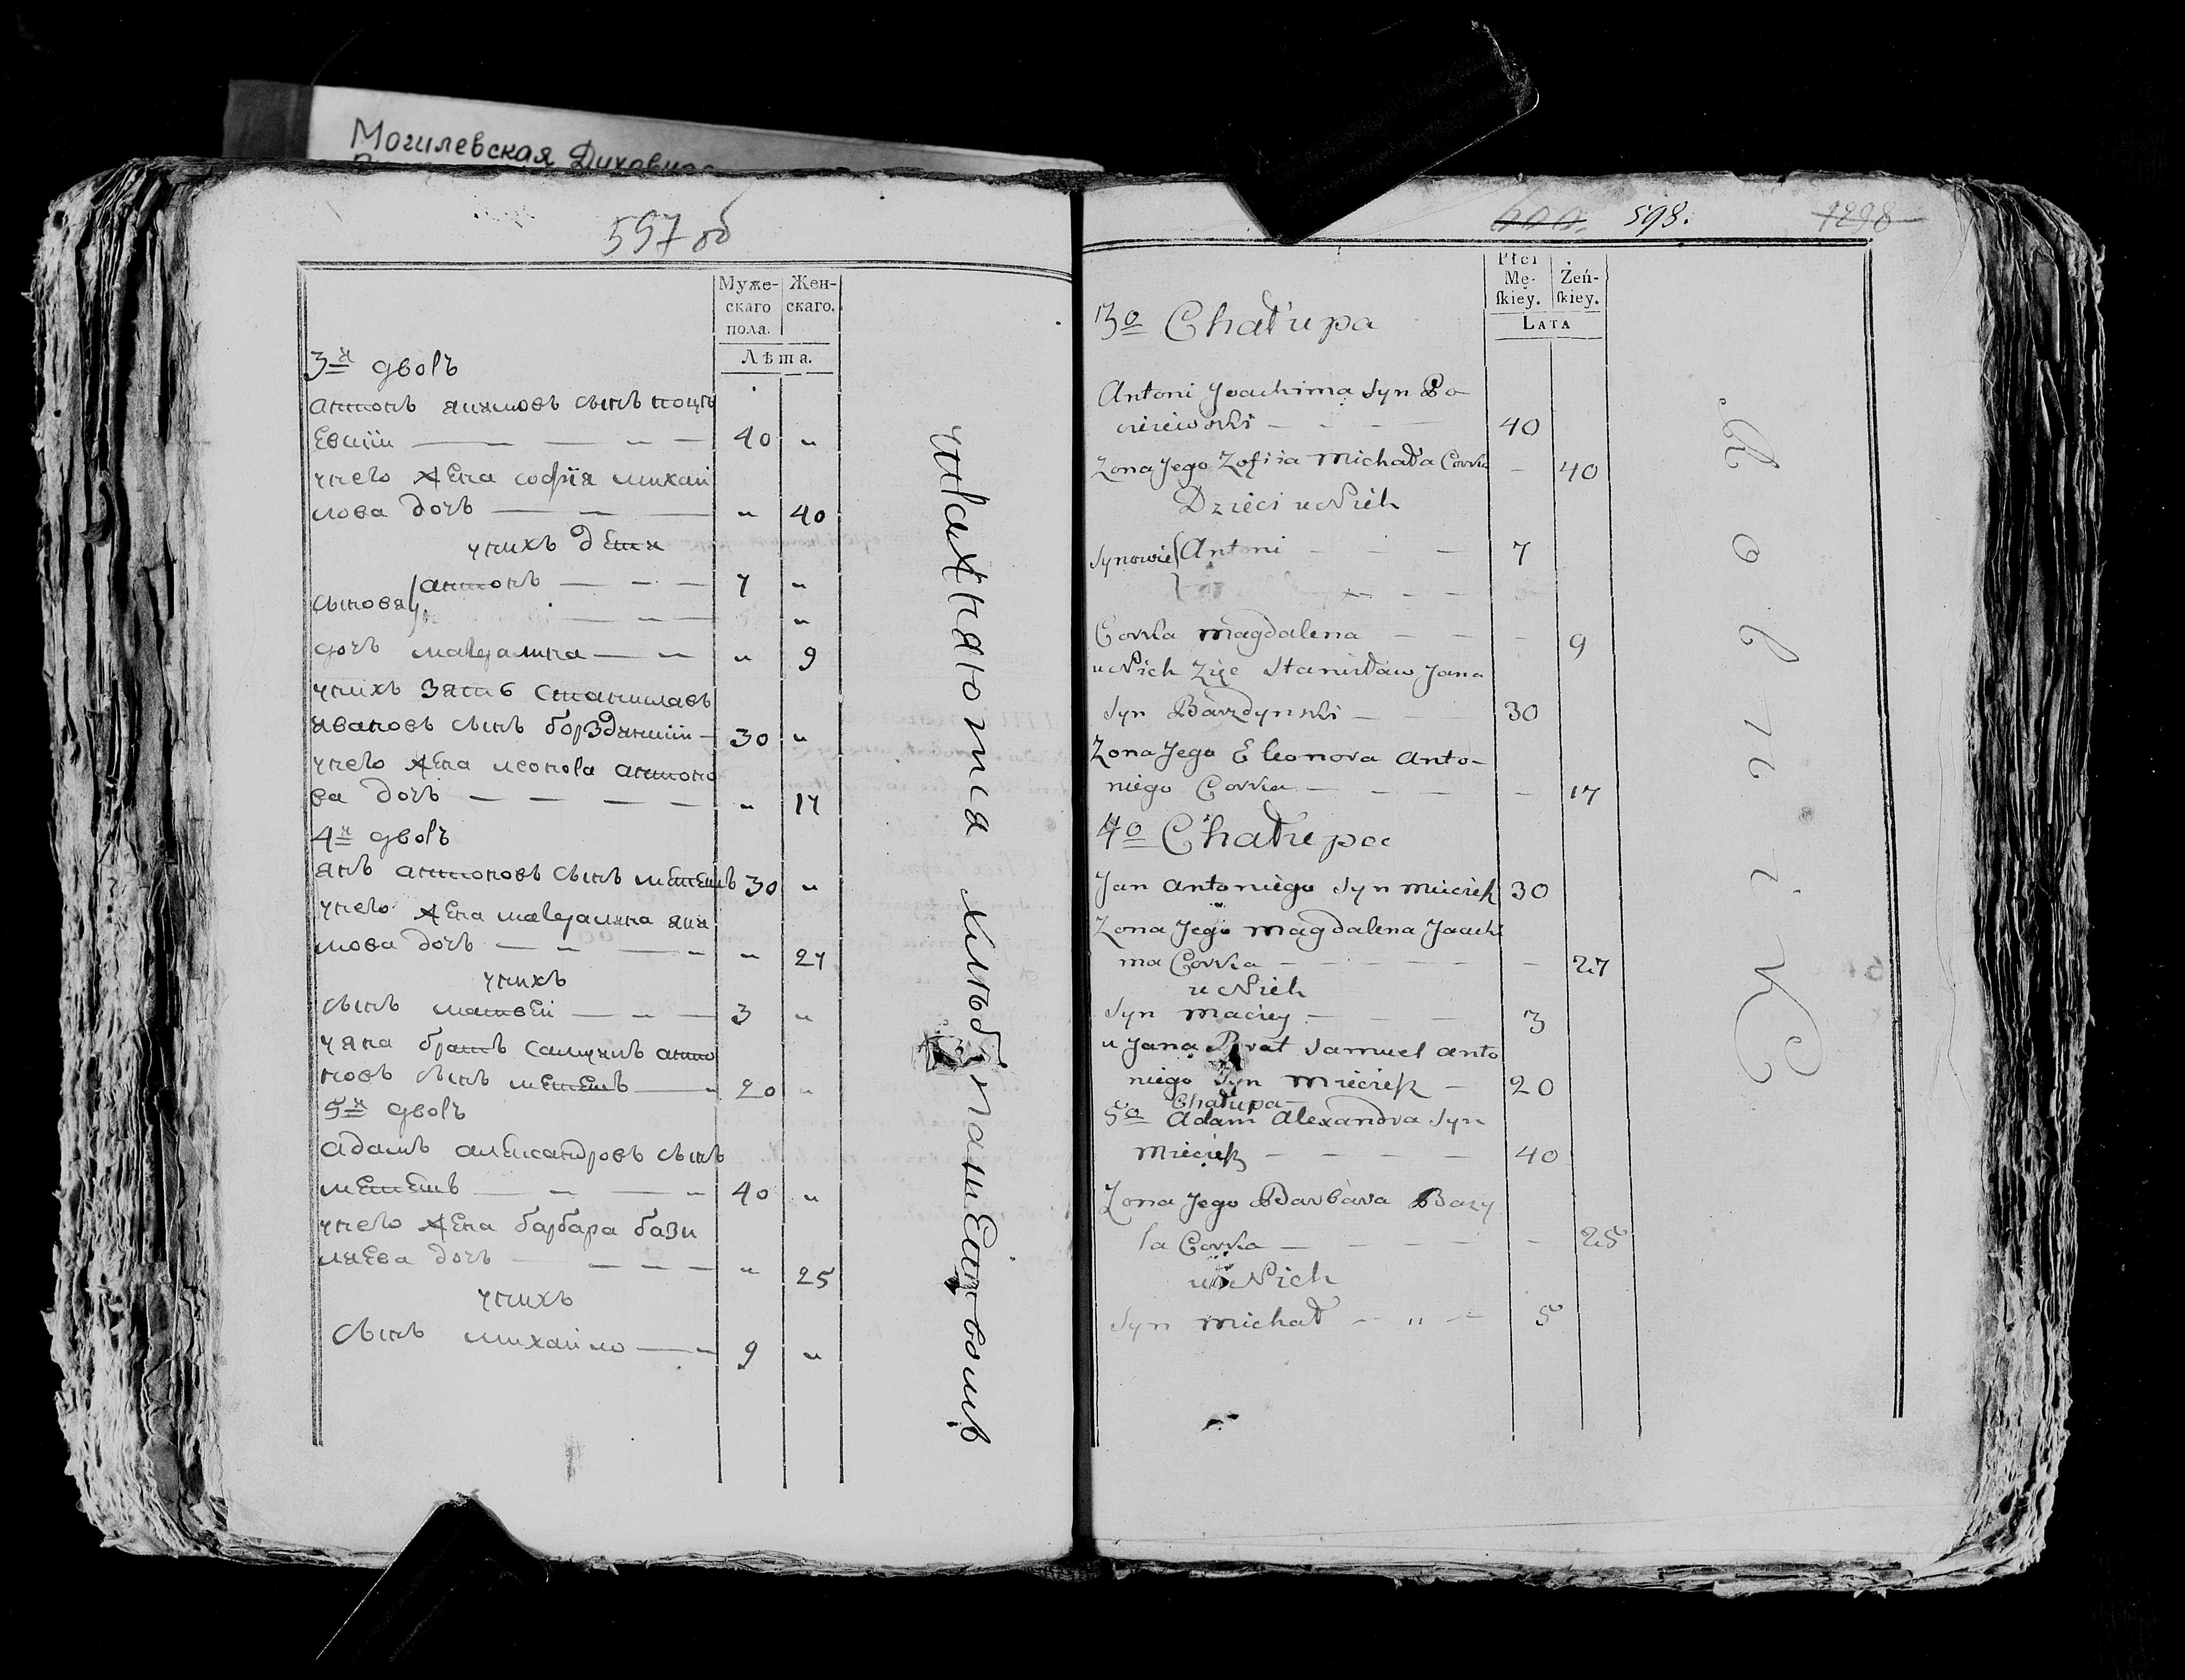 Могилевская Духовная
597 об
Муже-
скаго
пола.
Жен-
скаго.
Лѣта.
3й дворъ
антонъ якимовъ сынъ поцѣ
евскій — — — — 40 "
унего жена софія михаи
лова дочь — — — " 40
унихъ дети
сыновя антонъ — — — 7 "
— — — "
дочь магдалина — — " 9
унихъ зять станиславъ
ивановъ сынъ борздинскій — 30 "
унего жена леонора антоно
ва дочь — — — — " 17
4й дворъ
янъ антоновъ сынъ метешъ 30 "
унего жена магдалина яки
мова дочь — — — — " 27
унихъ
сынъ матвеи — — — 3 "
уяна братъ самуилъ анто
новъ сынъ метешъ — 20 "
5й дворъ
адамъ александровъ сынъ
метешъ — — — — 40 "
унего жена барбара бази
ляева дочь — — — — " 25
унихъ
сынъ михаило — — 9 "
598.
1298
Płci
Mę-
ſkiey.
Żeń-
ſkiey.
LATA
3o Chałupa
Antoni Joachima Syn Po
cieiewski — — — 40
Zona Jego Zofiia Michała Corka — 40
Dzieci u Nich
Synowie Antoni — — — 7
Corka Magdalena — — — 9
u Nich Zije Stanisław Jana
Syn Barzdynski — — 30
Zona Jego Eleonora Anto-
niego Corka — — — — 17
4o Chałupa
Jan Antoniego Syn Mieciesz 30
Zona Jego Magdalena Joachi
ma Corka — — — — — — 27
u Nich
Syn Maciey — — — 3
u Jana Brat Samuel Anto
niego Syn Mieciesz — 20
Chałupa —
5o Adam Alexandra Syn
Mieciesz — — — — 40
Zona Jego Barbara Bazy
la Corka — — — — — 25
u Nich
Syn Michał — " — 5